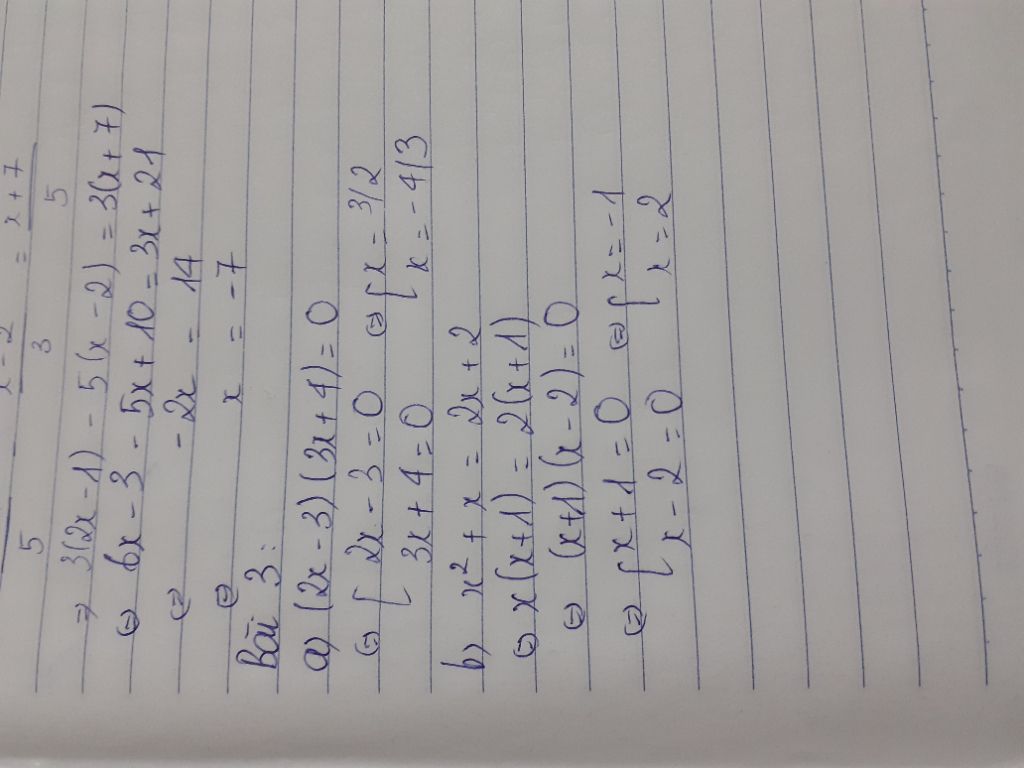 x - 2 = x + 7
5 3 5
⇒ 3(2x - 1) - 5(x - 2) = 3(x + 7)
⇔ 6x - 3 - 5x + 10 = 3x + 21
⇔ - 2x = 14
⇔ x = - 7
Bài 3:
a) (2x - 3)(3x + 4) = 0
⇔ [ 2x - 3 = 0 ⇔ [ x = 3/2
3x + 4 = 0 x = - 4/3
b) x² + x = 2x + 2
⇔ x(x + 1) = 2(x + 1)
⇔ (x + 1)(x - 2) = 0
⇔ [ x + 1 = 0 ⇔ [ x = - 1
x - 2 = 0 x = 2